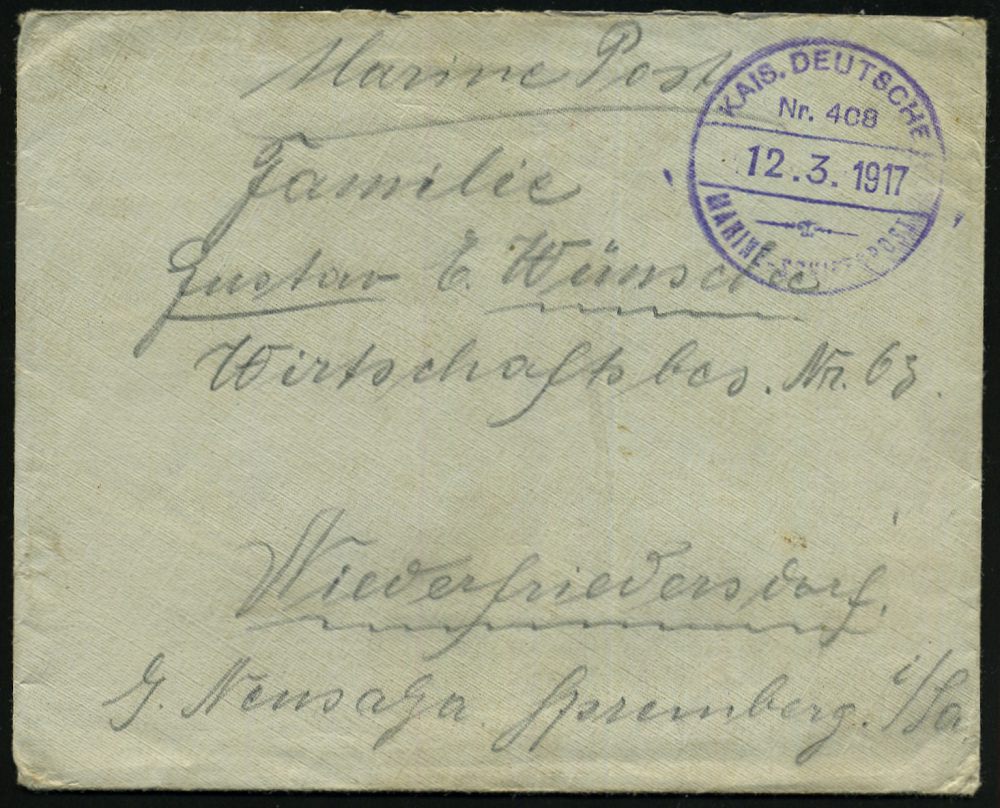 Marine Post
KAIS. DEUTSCHE
Nr. 408
12.3.1917
MARINE-SCHIFFSPOST
Familie
Gustav E. Wünsche
Wirtschaftsbes. Nr. 63.
Niederfriedersdorf.
Spremberg. i/Sa.